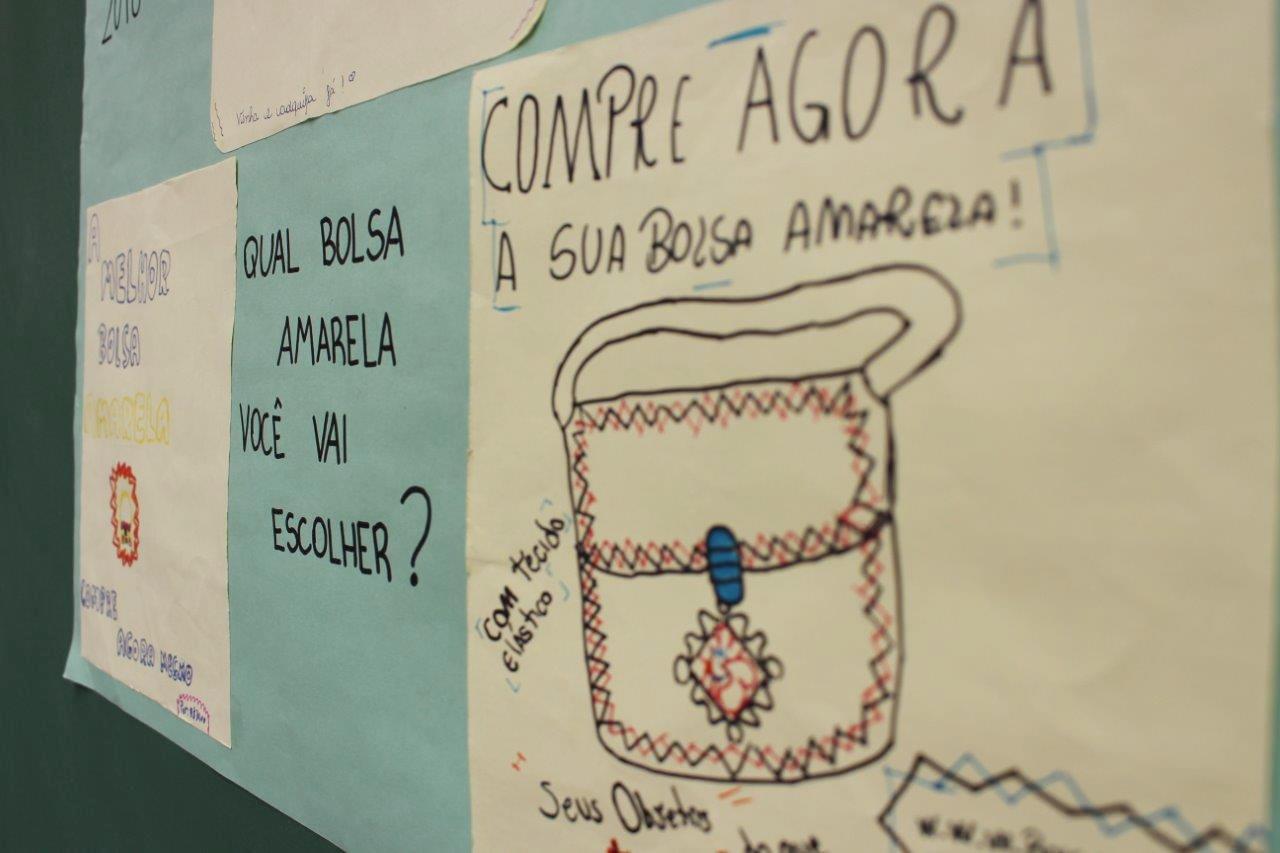 2016
Venha e adquira já!
A
MELHOR
BOLSA
AMARELA
COMPRE
AGORA MESMO
QUAL BOLSA
AMARELA
VOCÊ VAI
ESCOLHER?
COMPRE AGORA
A SUA BOLSA AMARELA!
COM TECIDO
ELÁSTICO
Seus Objetos
do que
W.W.W.